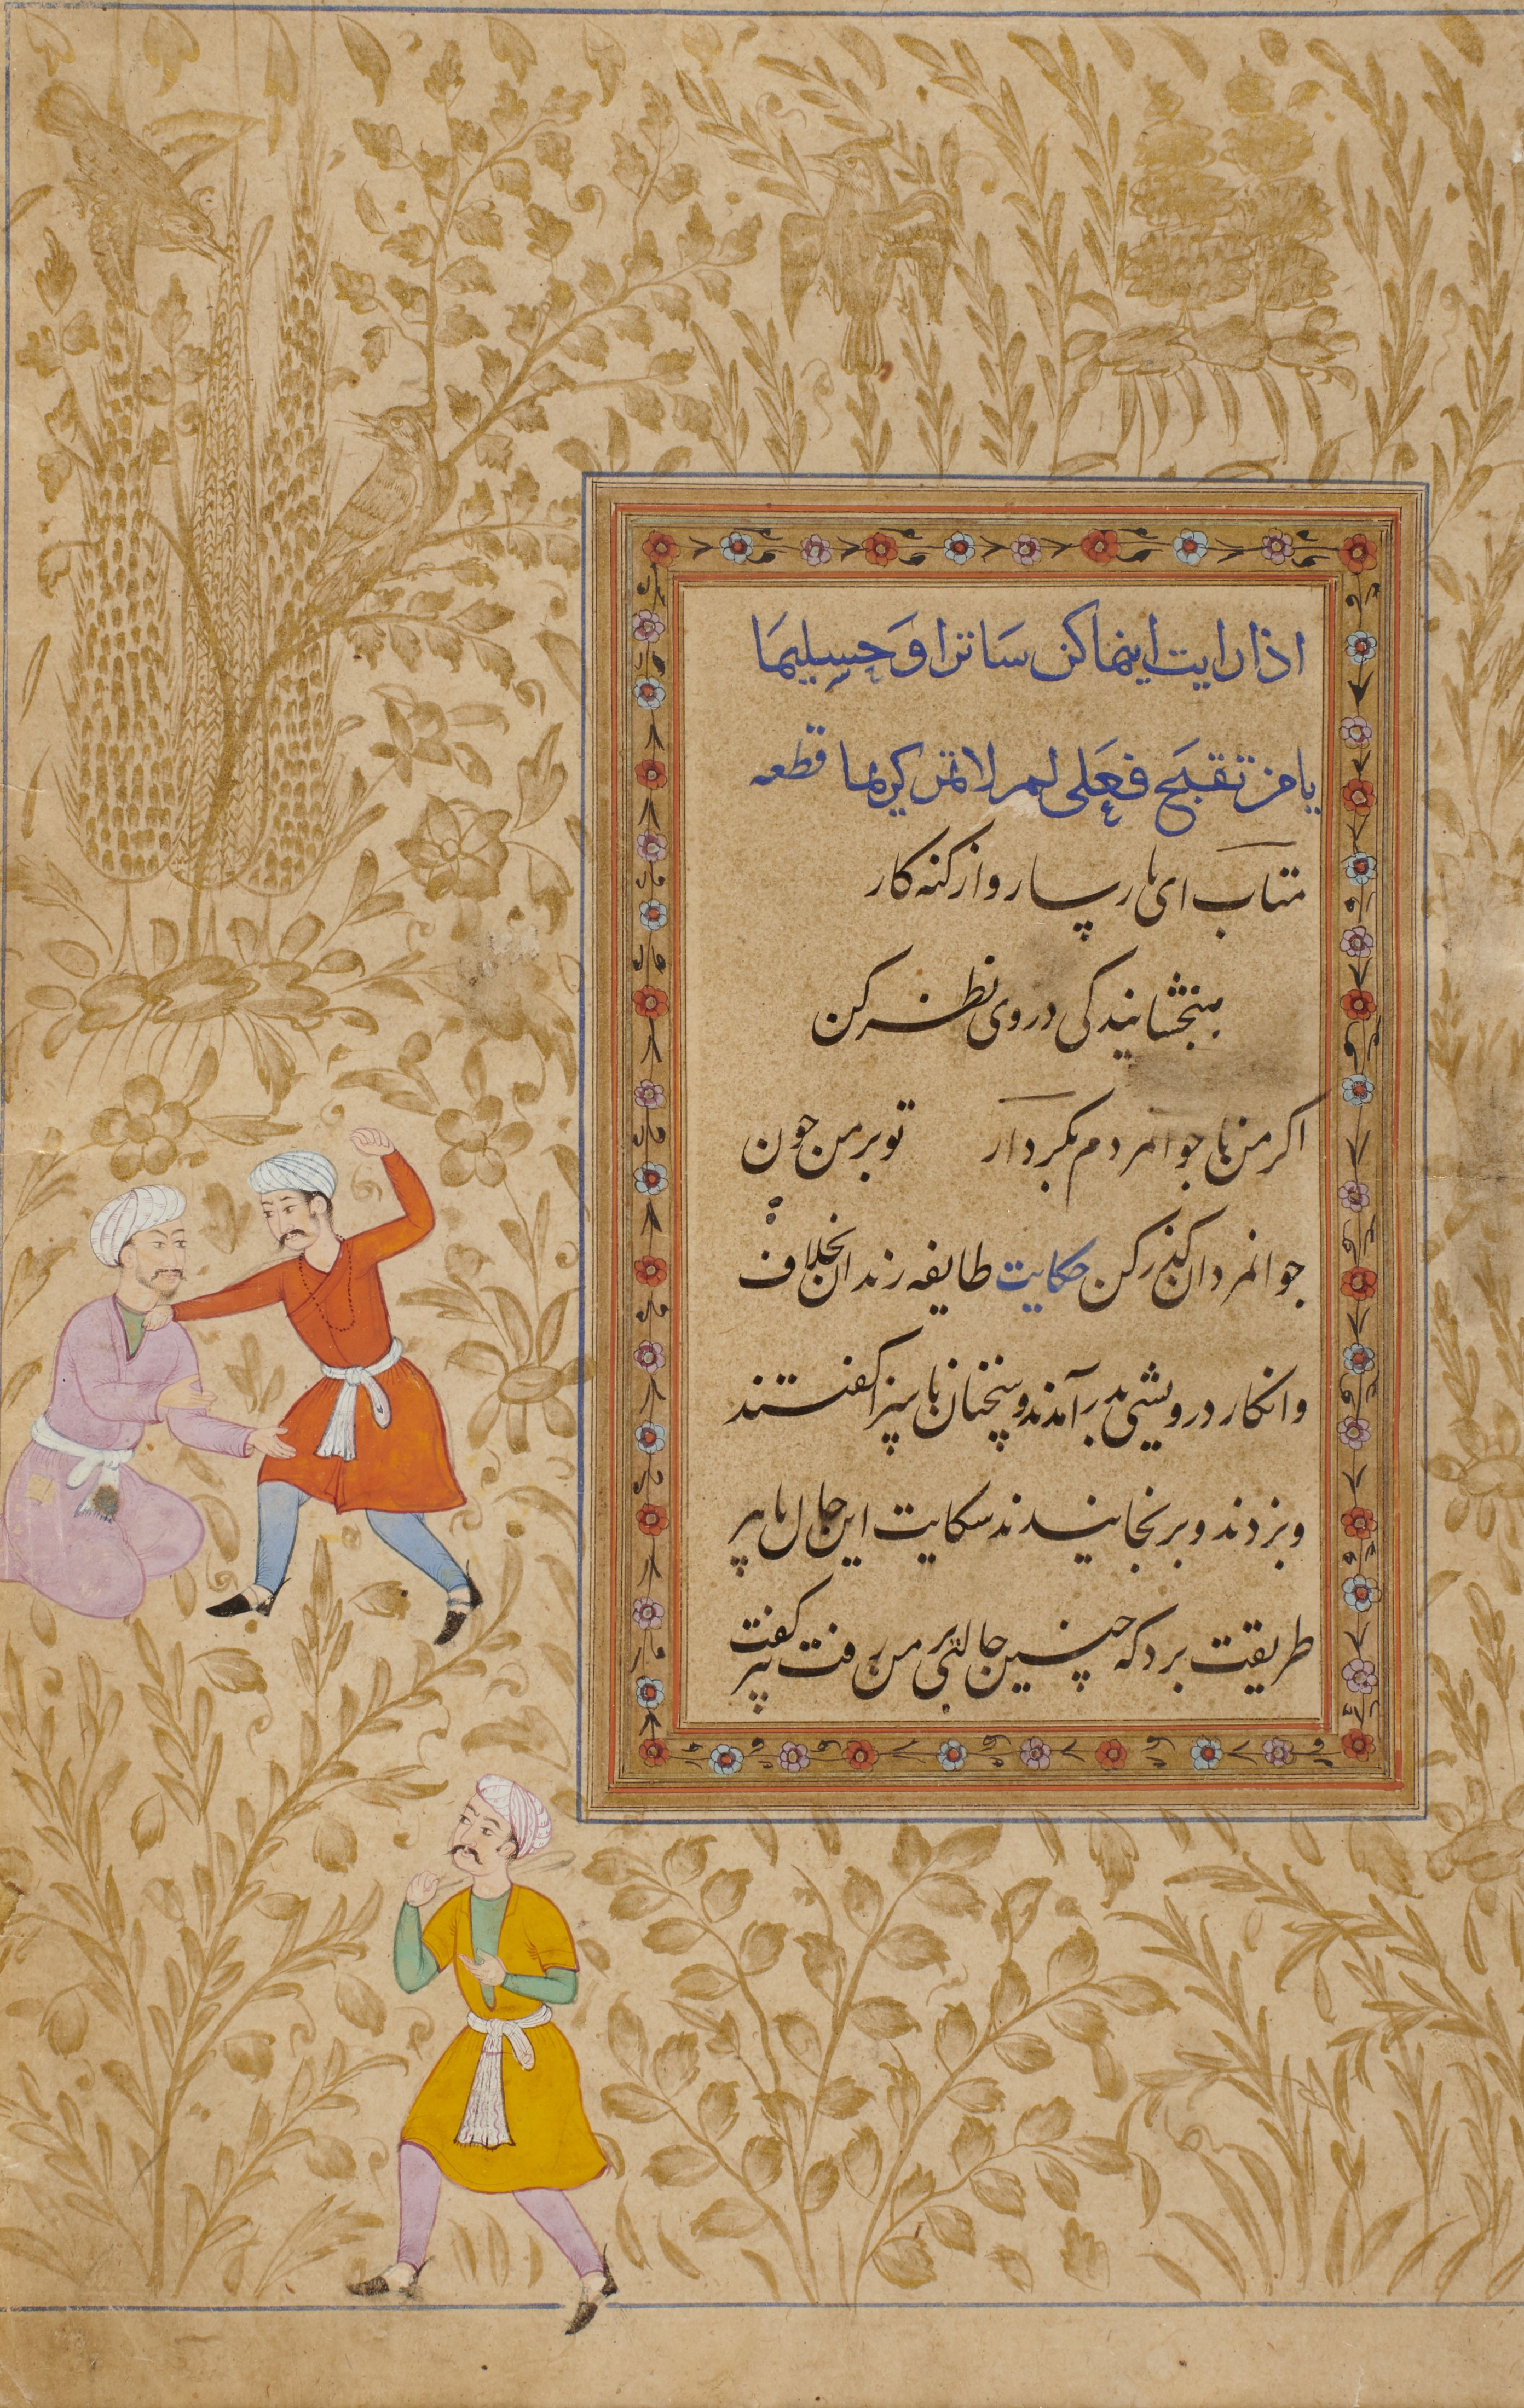 اذا رایت اینما کن ساترا وَحسلیمَا
یا من تقبَح فعَلی لمر لا تمر کریما قطعه
متاب ای پارسا رو از کنه کار
ببخشایندکی در وی نظر کن
اکر من نا جوانمردم بکردار تو بر من جون
جوانمردان کذر کن حکایت طایفه رندان بخلاف
وانکار درویشی بدر آمدند و سخنان ناسزا کفتند
و بزدند و برنجانیدند سکایت این حال با پیر
طریقت برد که چنین حالتی بر من رفت کفت